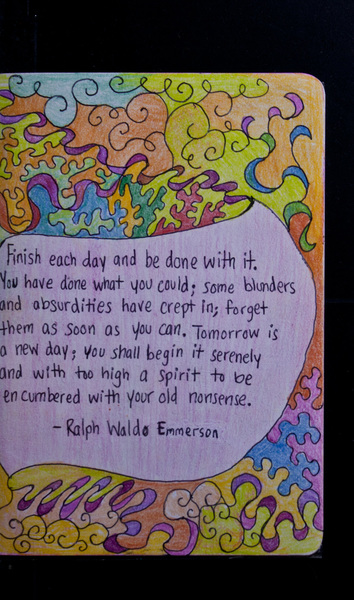 Finish each day and be done with it.
You have done what you could; some blunders
and absurdities have crept in; forget
them as soon as you can. Tomorrow is
a new day; you shall begin it serenely
and with too high a spirit to be
encumbered with your old nonsense.
- Ralph Waldo Emmerson